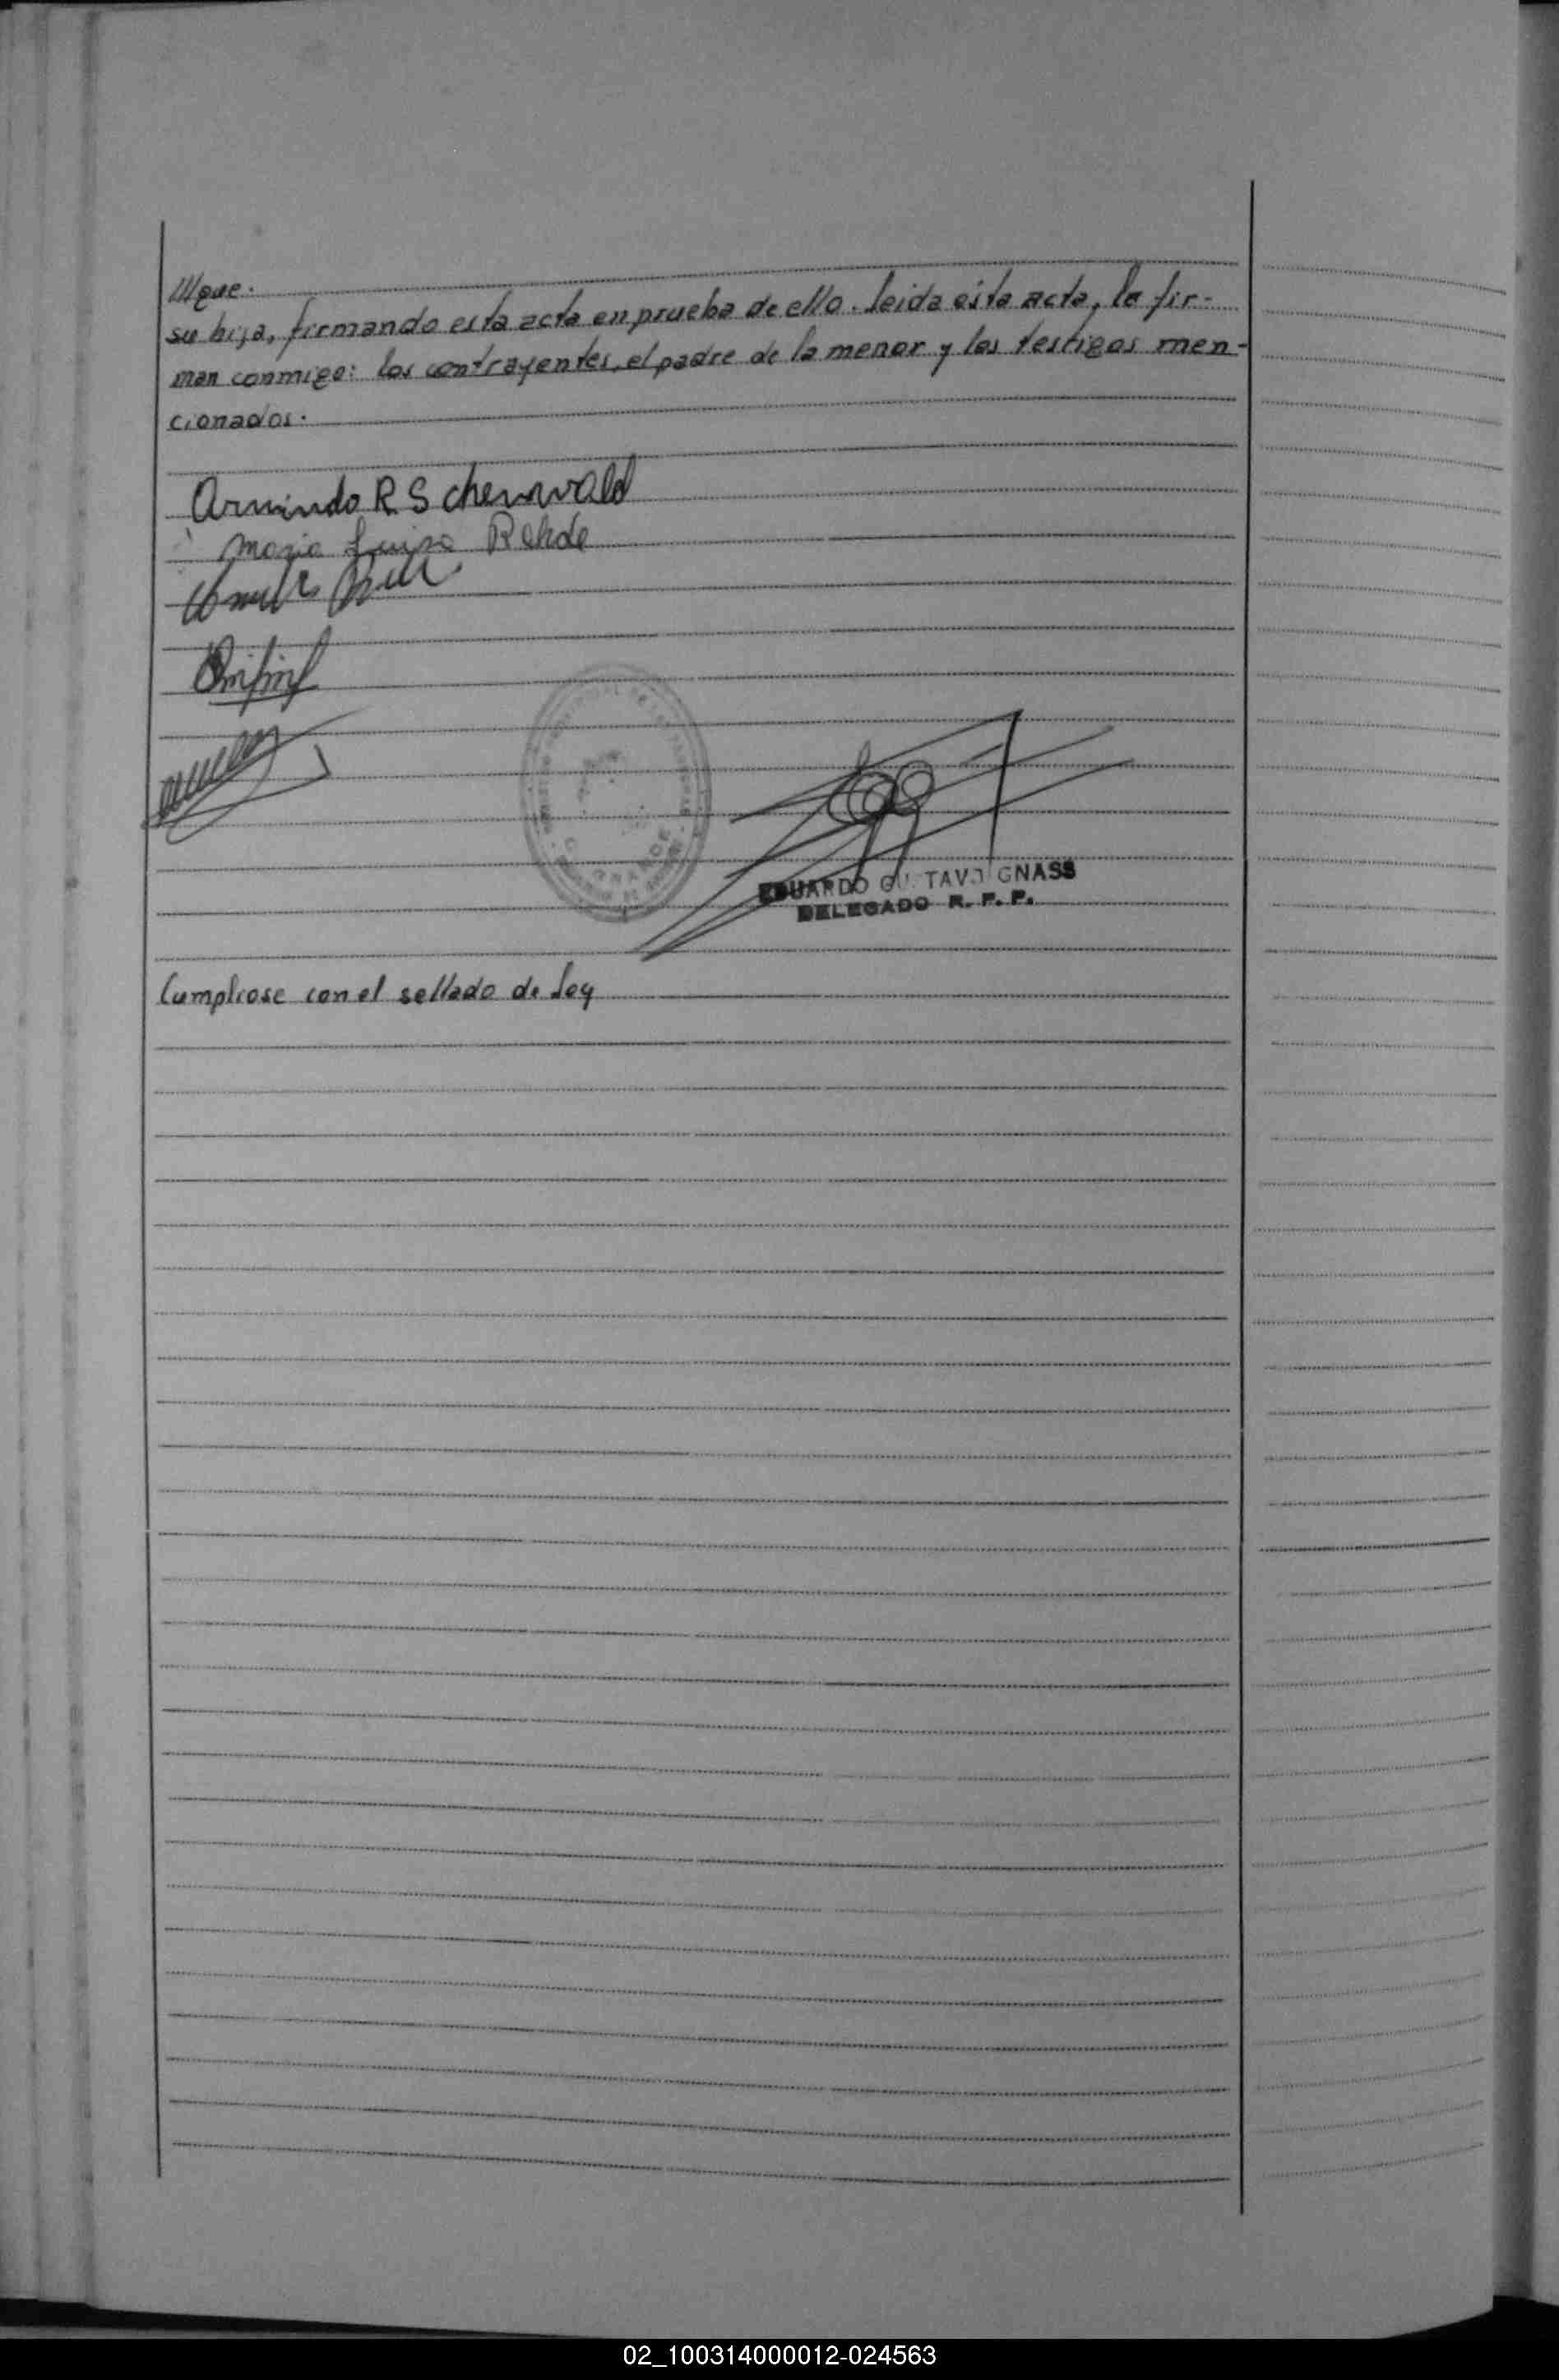 su hija, firmando esta acta en prueba de ello. Leida esta acta, la fir-
man conmigo: los contrayentes, el padre de la menor y los testigos men-
cionados.
Armindo R Schenwald
Maria Luisa Rehde
GRANDE
EDUARDO GUSTAVO GNASS
DELEGADO R. P. P.
Cumpliose con el sellado de Ley
02_100314000012-024563